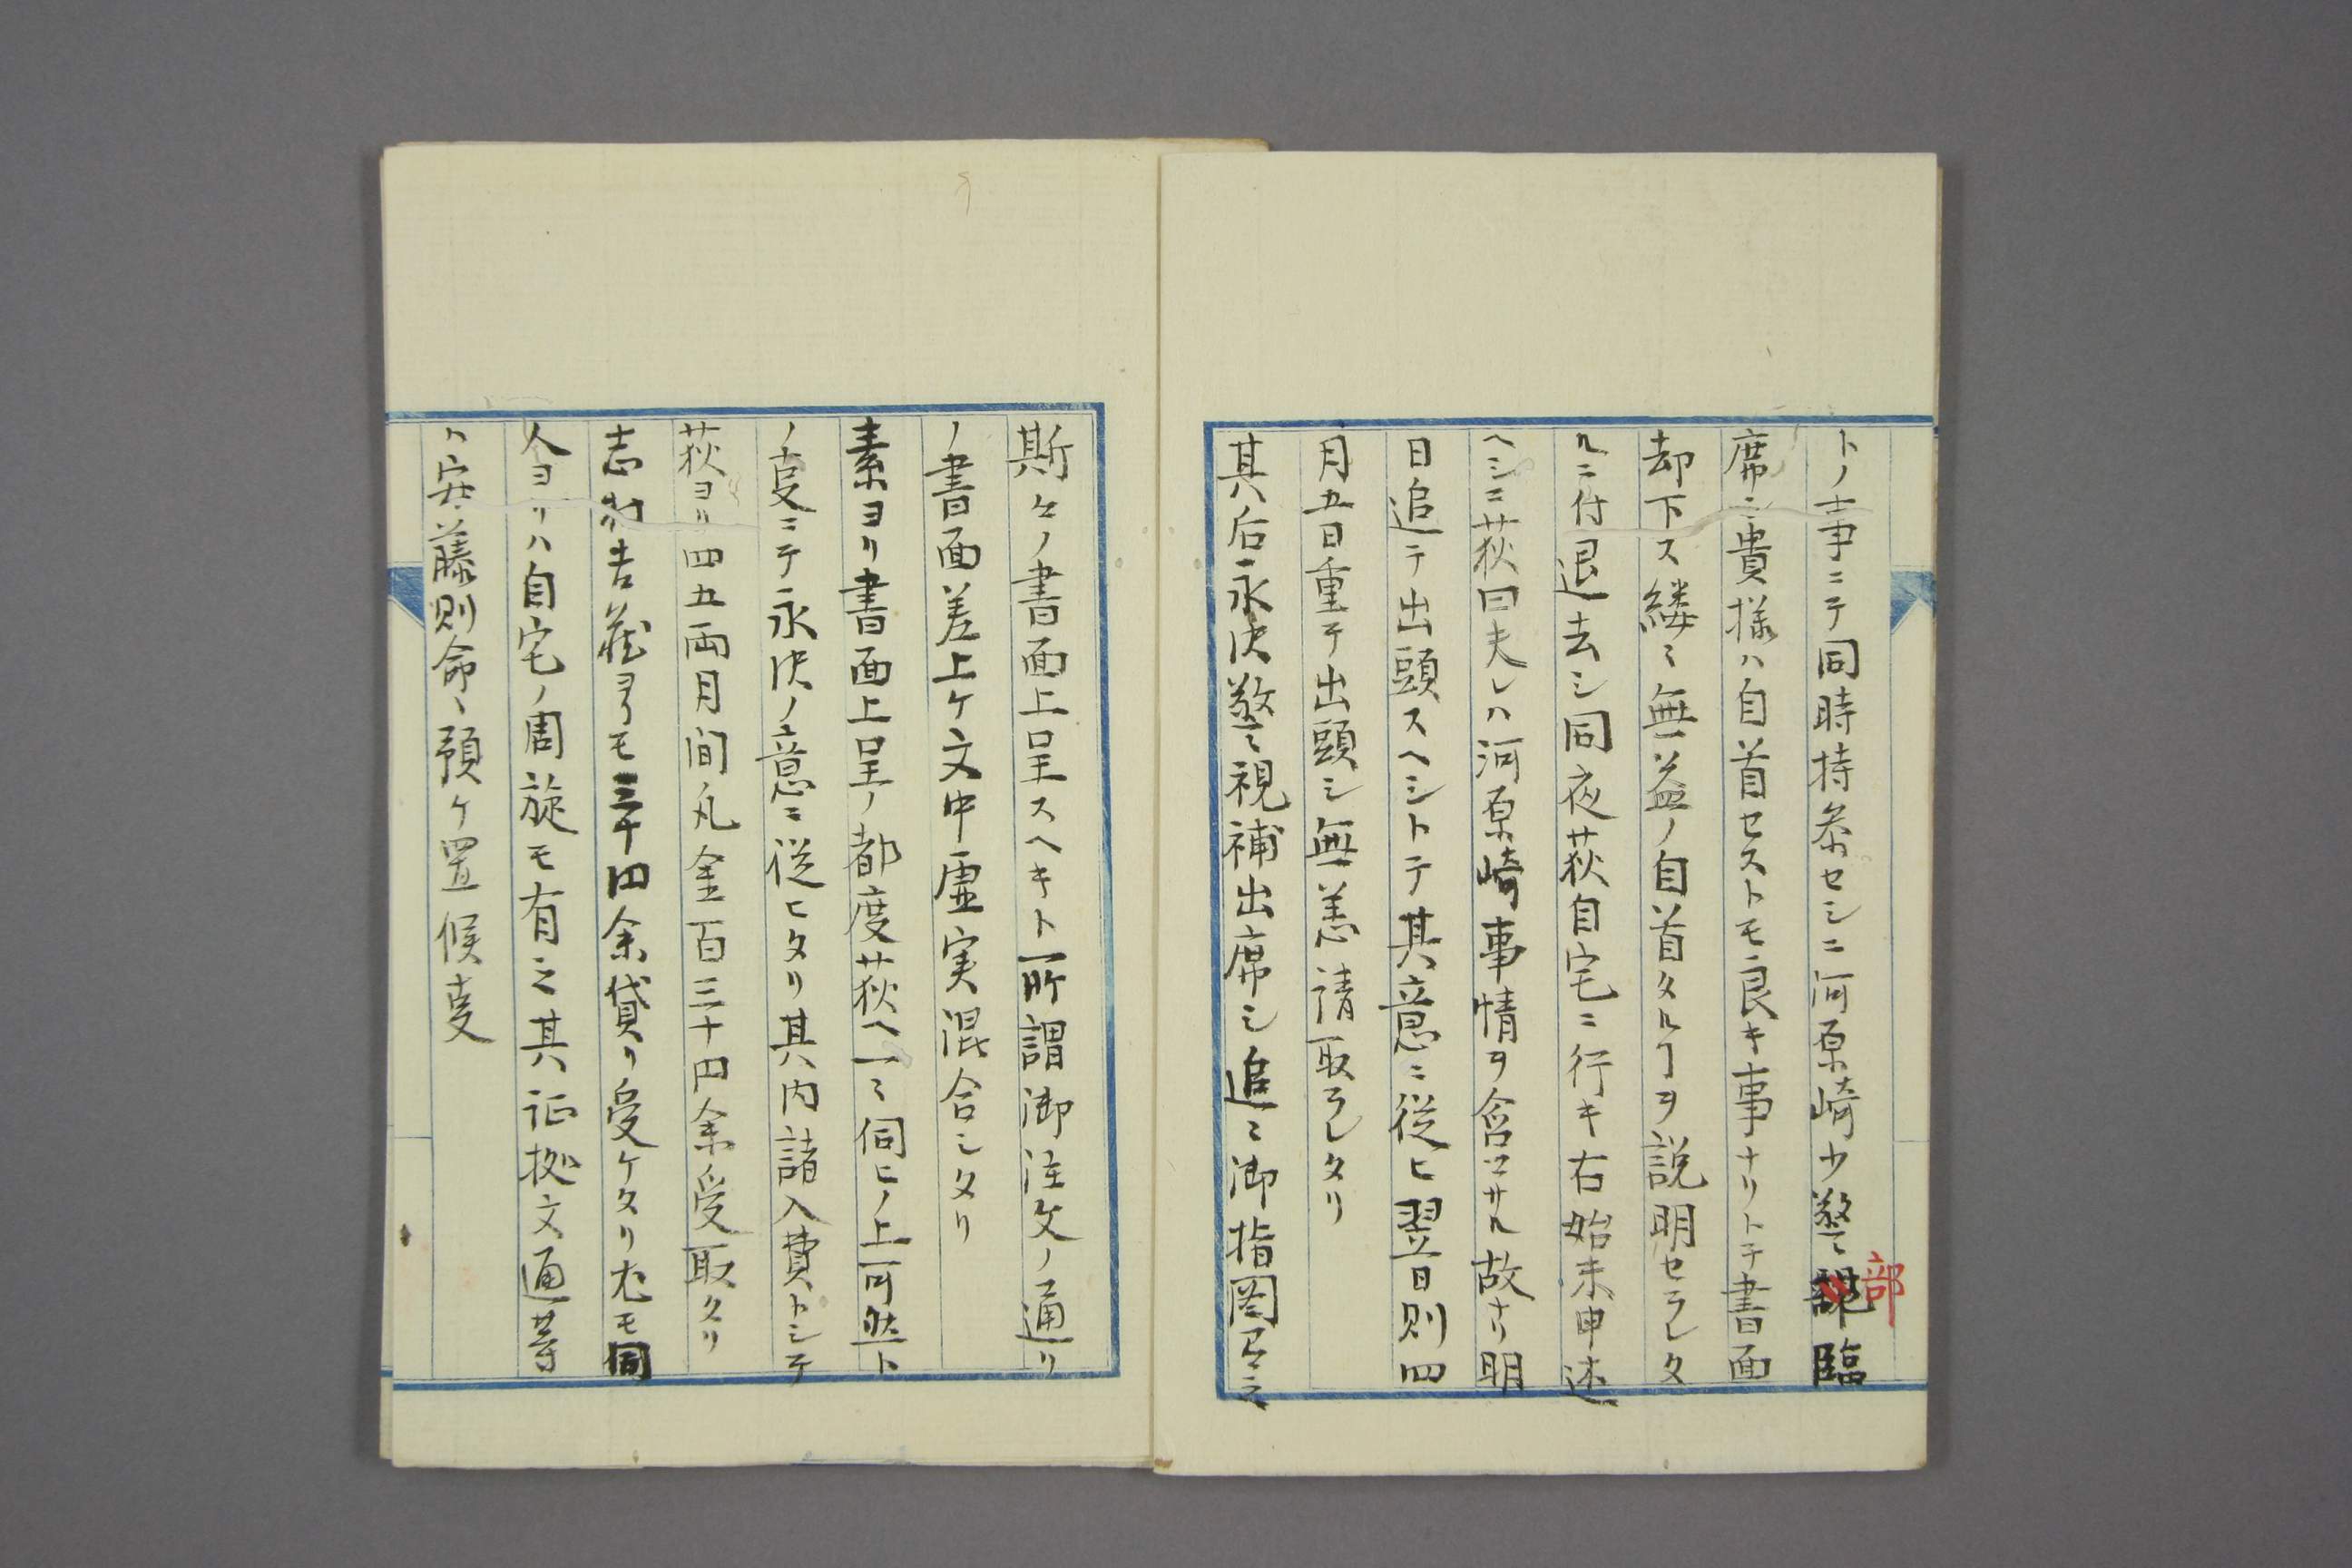 トノ事ニテ同時持参セシニ河原崎少警視臨
部
席ニ貴様ハ自首セストモ良キ事ナリトテ書面
却下ス縷々無益ノ自首タルヿヲ説明セラレタ
ルニ付退去シ同夜荻自宅ニ行キ右始末申述
ヘシニ荻曰夫レハ河原崎事情ヲ含マサル故ナリ明
日追テ出頭スヘシトテ其意ニ従ヒ翌日則四
月五日重テ出頭シ無恙請取ラレタリ
其后永决警視補出席シ追々御指図アリ之
斯々ノ書面上呈スヘキト所謂御注文ノ通リ
ノ書面差上ケ文中虚実混合シタリ
素ヨリ書面上呈ノ都度荻ヘ一々伺ヒノ上可然ト
ノ叓ニテ永决ノ意ニ従ヒタリ其内諸入費トシテ
荻ヨリ四五両月間凡金百三十円余受取タリ
志村吉蔵ヨリモ三十円余貸リ受ケタリ尤モ同
人ヨリハ自宅ノ周旋モ有之其証拠文通等
ハ安藤則命ヘ預ケ置候叓